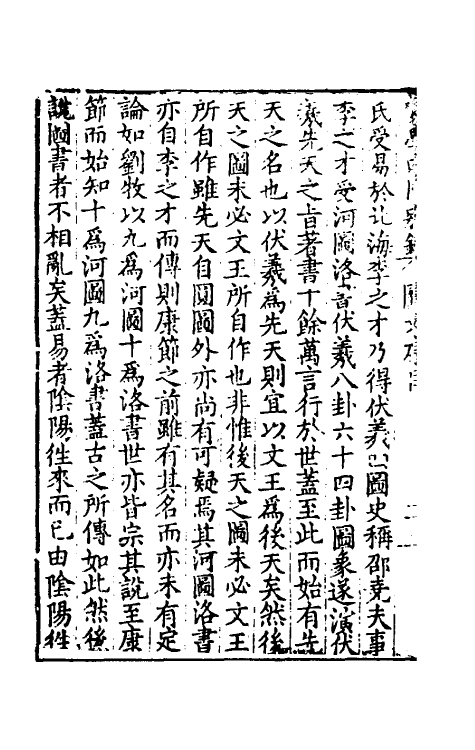 氏受易於北海李之才乃得伏羲四圖史稱邵堯夫事
李之才受河圖洛書伏羲八卦六十四卦圖象遂演伏
羲先天之旨著書十餘萬言行於世蓋至此而始有先
天之名也以伏羲為先天則宜以文王為後天矣然後
天之圖未必文王所自作也非惟後天之圖未必文王
所自作雖先天自圓圖外亦尚有可疑焉其河圖洛書
亦自李之才而傳則康節之前雖有其名而亦未有定
論如劉牧以九為河圖十為洛書世亦皆宗其說至康
節而始知十為河圖九為洛書蓋古之所傳如此然後
說圖書者不相亂矣蓋易者陰陽往來而已由陰陽往